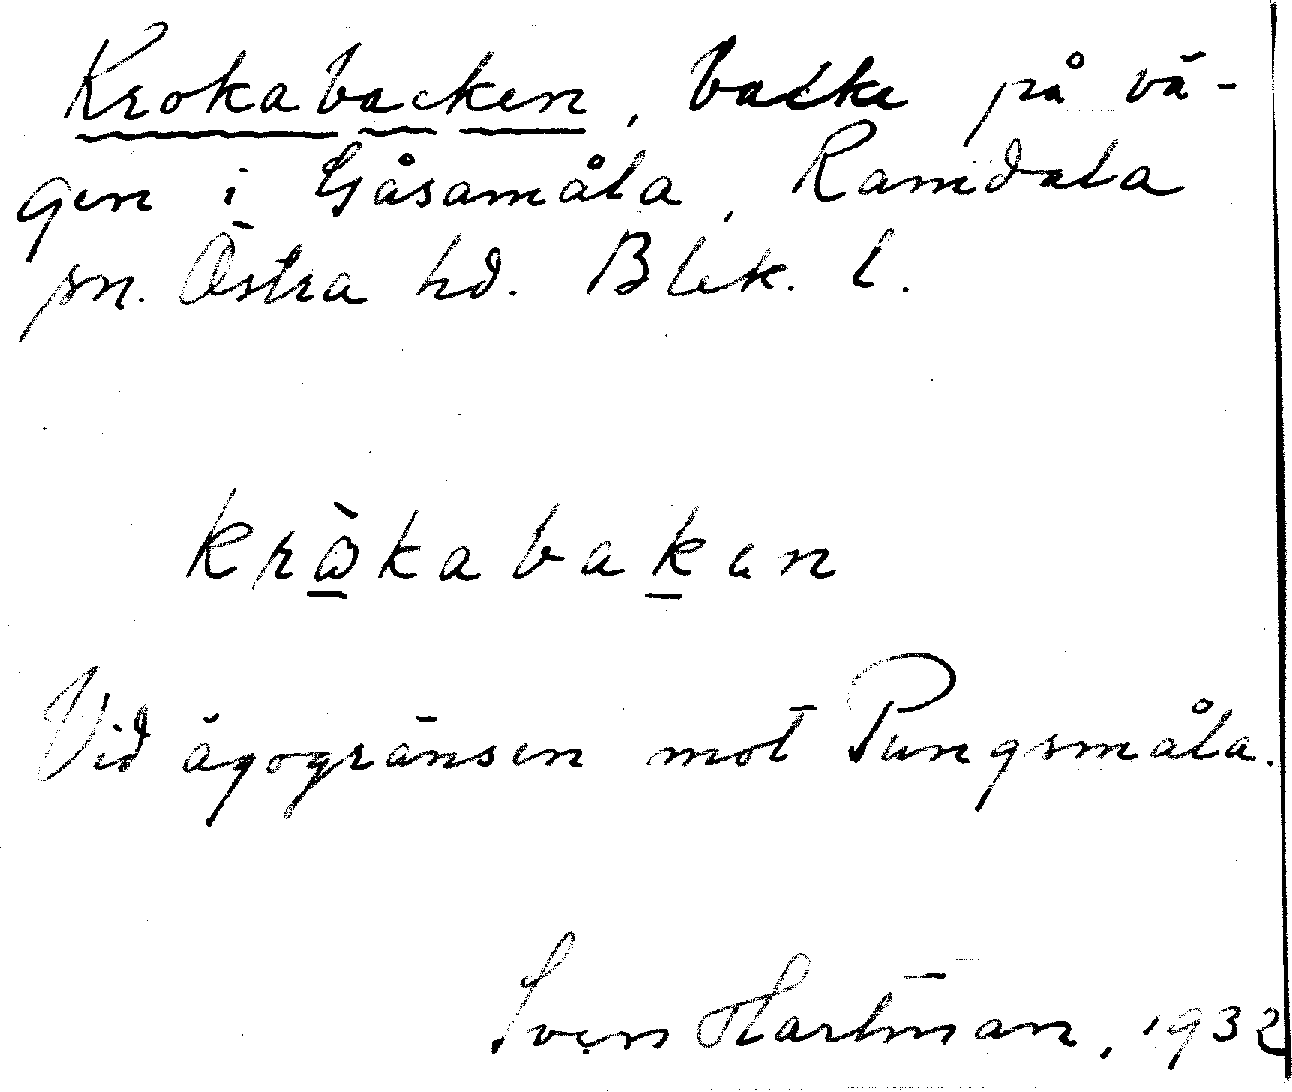 Krokabacken, backe på vä-
gen i Gåsamåla, Ramdala
sn. Östra hd. Blek. l.
Vid ägogränsen mot Pungsmåla.
Sven Hartman, 1932